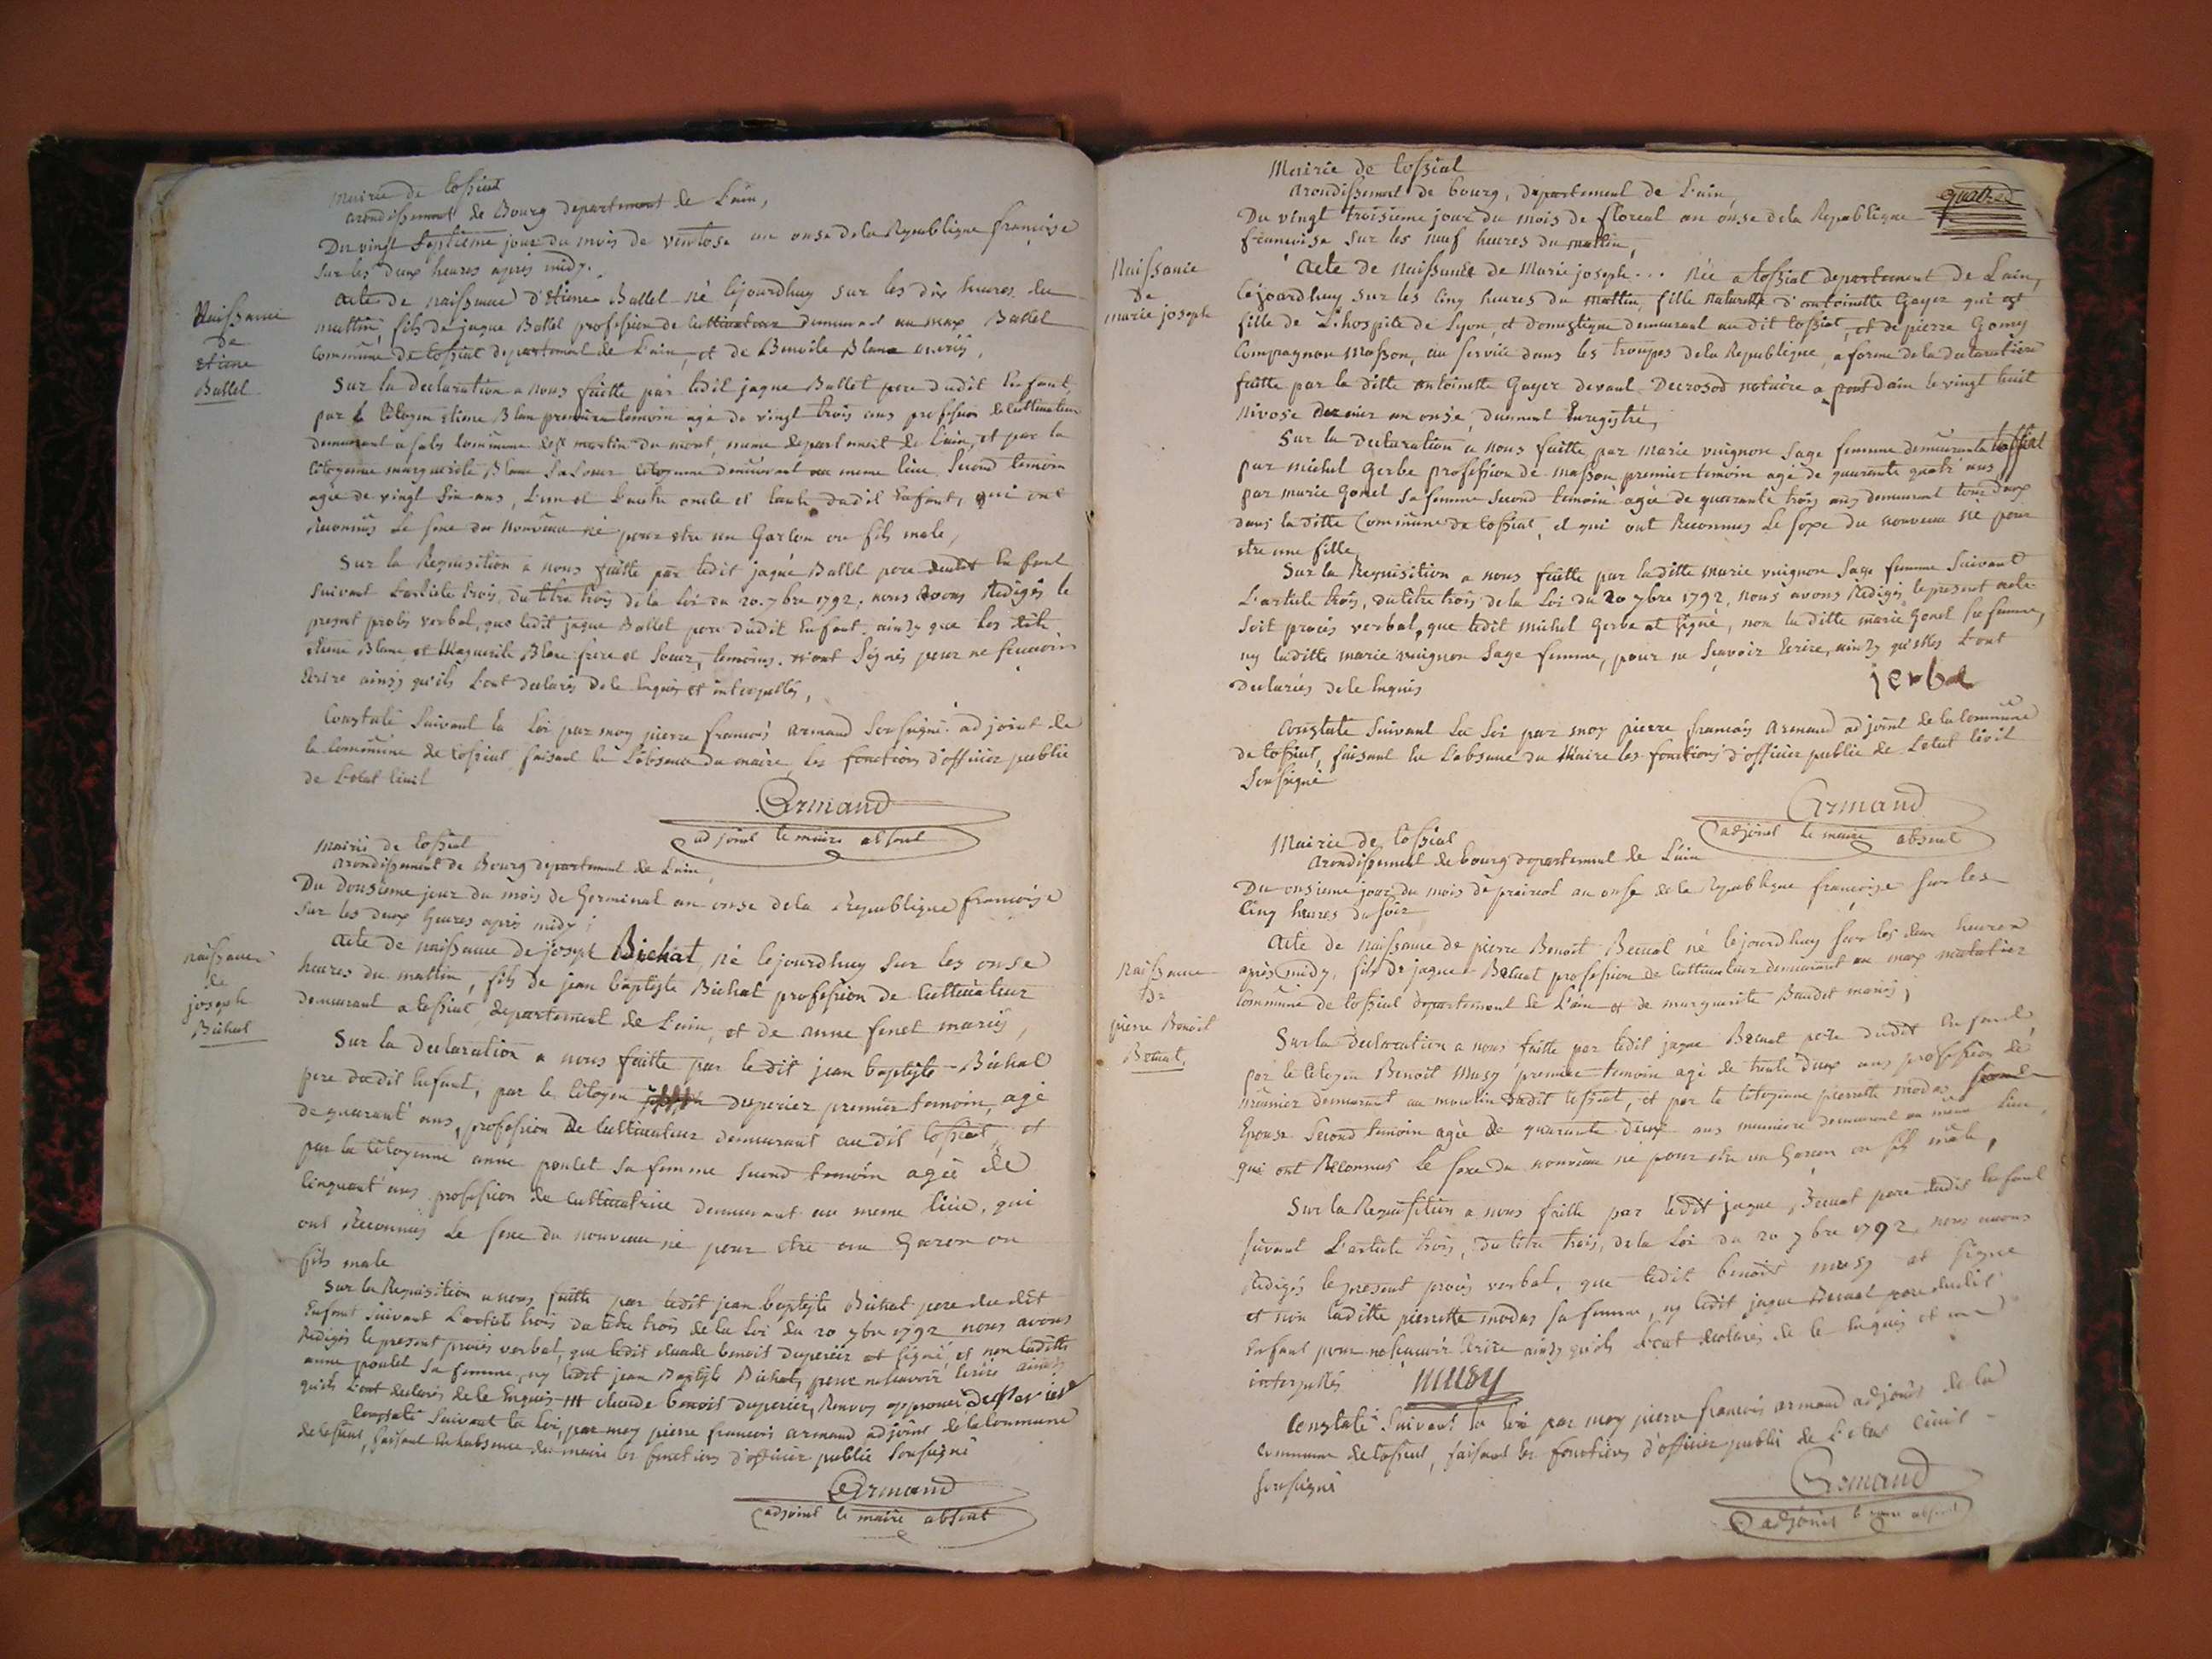 Mairie de tossiat
arondissement de Bourg departement de L'ain,
Du vingt Septieme jour du mois de ventose an onse de la Republique françoise
sur les deux heures après midy.
Naissance
de
etiene
Ballet
Acte de naissance d'Etiene Ballet né cejourdhuy sur les dix heures du
mattin, fils de jaque Ballet profession de cultivateur demeurant au max Ballet
commune de tossiat departement de L'ain, et de Benoite Blanc mariés,
Sur la declaration a nous faitte par ledit jaque Ballet pere dudit Enfant,
par le Citoyen etiene Blan premier temoin agé de vingt trois ans profession de cultivateur
demeurant a commune de st martin du mont, meme departement de L'ain, et par la
citoyenne marguerite Blanc sa soeur citoyenne demeurant au meme lieu, second temoin
agée de vingt six ans, L'un et L'autre oncle et tante dudit Enfant, qui ont
reconnus Le sexe du nouveau né pour etre un Garson ou fils male,
Sur la Requisition a nous faitte par ledit jaque Ballet pere dudit Enfant
suivant L'article trois, du titre trois de la Loi du 20. 7bre 1792, nous avons Redigés le
present procès verbal, que ledit jaque Ballet pere dudit Enfant, ainsy que les dits
etiene Blanc et Marguerite Blanc frère et soeur, temoins, n'ont signés pour ne sçavoir
Ecrire ainsy qu'ils L'ont declarés de le Enquis et interpellés,
Constaté suivant la Loi par moy pierre françois armand soussigné adjoint de
la commune de tossiat faisant en L'absence du maire, les fonctions d'officier public
de L'etat civil
Armand
adjoint le maire absent
Mairie de tossiat
arondissement de Bourg departement de L'ain,
Du dousieme jour du mois de Germinal an onse de la Republique françoise
sur les deux heures après midy;
naissance
de
joseph
Bichat
Acte de naissance de joseph Bichat, né cejourdhuy sur les onse
heures du mattin, fils de jean baptiste Bichat profession de cultivateur
demeurant a tossiat, departement de L'ain, et de anne fenet mariés,
Sur la declaration a nous faitte par le dit jean baptiste Bichat
pere dudit Enfant, par le Citoyen duperier premier temoin, agé
de quarant' ans, profession de cultivateur demeurant audit tossiat, et
par la Citoyenne anne poulet sa femme second temoin agée de
cinquant' ans profession de cultivatrice demeurant au meme lieu, qui
ont Reconnus Le sexe du nouveau né pour etre un Garson ou
fils male
Sur la Requisition a nous faitte par ledit jean baptiste Bichat pere du dit
Enfant suivant L'article trois du titre trois de la Loi du 20 7bre 1792 nous avons
Redigés le present procès verbal, que ledit claude benoit duperier at signé, et non laditte
anne poulet sa femme, ny ledit jean Baptiste Bichat, pour ne sçavoir Ecrire ainsy
qu'ils L'ont declarés de le Enquis claude benoit duperier, Renvoy approuvé duperier
Constaté suivant la Loi, par moy pierre francois armand adjoint de la commune
de tossiat, faisant En L'absence du maire les fonctions d'officier public soussigné
Armand
adjoint le maire absent
Mairie de tossiat
arondissement de bourg, departement de L'ain,
Du vingt troisieme jour du mois de floreal an onse de la Republique
francoise sur les neuf heures du mattin,
Naissance
de
marie joseph
Acte de Naissance de Marie joseph... née a tossiat departement de L'ain,
cejourdhuy sur les cinq heures du mattin, fille naturelle d'antoinette Gayer qui est
fille de L'hospite de Lyon, et domestique demeurant au dit tossiat, et de pierre Gomy
Compagnon Masson, au service dans les troupes de la Republique, a forme de la declaration
faitte par la ditte antoinette Gayer devant Decrosod notaire a pont dain le vingt huit
Nivose dernier an onse, duement Enregistré,
Sur la declaration a nous faitte par marie vuignon sage femme demeurante a tossiat
par michel Gerbe profession de masson premier temoin agé de quarante quatr' ans
par marie Gonel sa femme second temoin agée de quarante trois ans demeurant tous deux
dans la ditte Commune de tossiat, et qui ont Reconnus Le sexe du nouveau né pour
etre une fille,
Sur la Requisition a nous faitte par laditte marie vuignon sage femme suivant
L'article trois, du titre trois de la Loi du 20 7bre 1792, nous avons Redigés le present acte
soit procès verbal, que ledit michel Gerbe at signé, non la ditte marie Gonel sa femme,
ny laditte marie vuignon sage femme, pour ne sçavoir Ecrire, ainsy qu'elles L'ont
declarées de le Enquis
jerbe
Constaté suivant La Loi par moy pierre francois armand adjoint de la Commune
de tossiat, faisant En L'absence du Maire les fonctions d'officier public de L'etat civil
soussigné
Armand
adjoint le maire absent
Mairie de tossiat
arondissement de bourg departement de L'ain
Du onsieme jour du mois de prairial an onse de la Republique françoise sur les
cinq heures du soir
Naissance
de
pierre Benoit
Becuat,
Acte de Naissance de pierre Benoit Becuat né cejourdhuy sur les deux heures
après midy, fils de jaque Becuat profession de cultivateur demeurant au max
commune de tossiat departement de L'ain et de marguerite Baudet mariés,
Sur la declaration a nous faitte par ledit jaque Becuat pere dudit Enfant,
par le Citoyen Benoit Musy premier temoin agé de trente deux ans profession de
meunier demeurant au moulin dudit tossiat, et par la Citoyenne pierrette modas
Epouse second temoin agée de quarante deux ans meuniere demeurant au même lieu,
qui ont Reconnus Le sexe du nouveau né pour etre un Garson ou fils mâle,
Sur la Requisition a nous faitte par ledit jaque Becuat pere dudit Enfant
suivant L'article trois, du titre trois, de la Loi du 20 7bre 1792, nous avons
Redigés le present procès verbal, que ledit benoit musy at signé
et non laditte pierrette modas sa femme, ny ledit jaque Becuat pere dudit
Enfant pour ne sçavoir Ecrire ainsy qu'ils L'ont declarés de le Enquis et
interpellés
musy
Constaté suivant la Loi par moy pierre francois armand adjoint de la
commune de tossiat, faisant les fonctions d'officier public de L'etat civil
soussigné
Armand
adjoint le maire absent